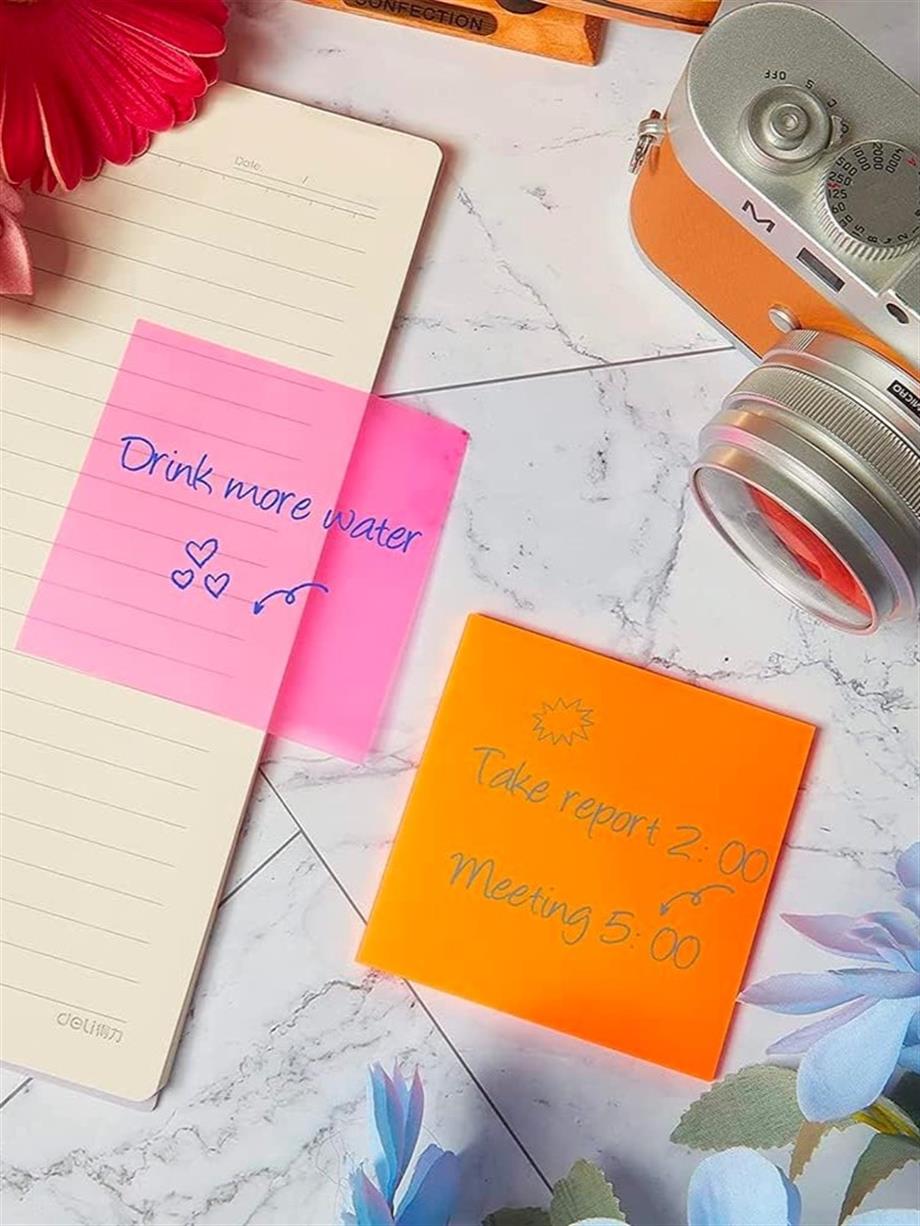 CONFECTION
Date.
Drink more water
Take report 2:00
Meeting 5:00
deli得力
OFF S C
M
4000
2000
500
250
125
60
8
2
MICRO